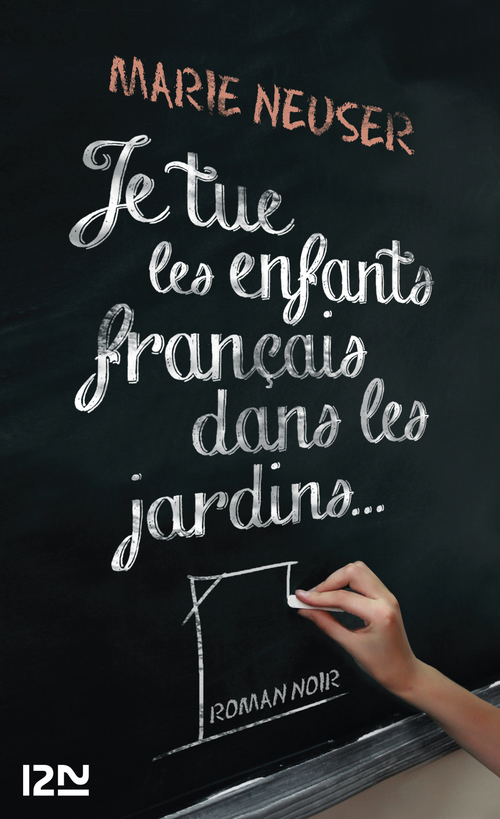 MARIE NEUSER
Je tue
les enfants
français
dans les
jardins...
ROMAN NOIR
12N2